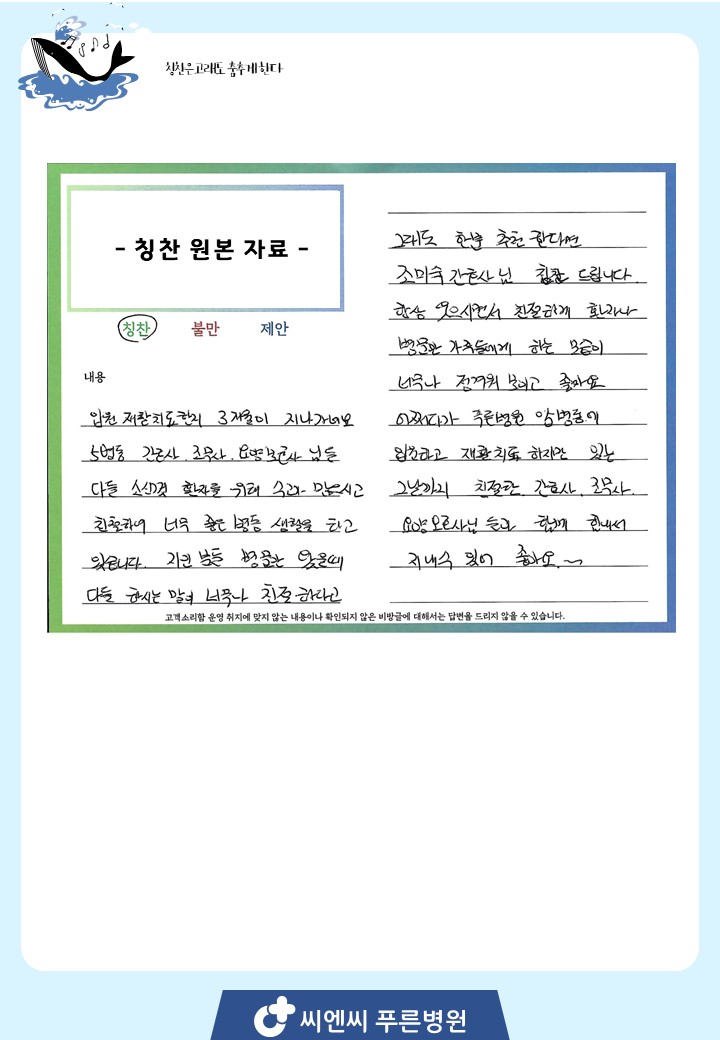 칭찬은 고래도 춤추게 한다
- 칭찬 원본 자료 -
칭찬 불만 제안
내용
입원 재활치료한지 3개월이 지나가네요
5병동 간호사. 조무사. 요양보호사 님들
다들 소신껏 환자를 위해 수고가 많으시고
친절하여 너무 좋은 병동 생활을 하고
있습니다. 지인 분들 병문안 왔을때
다들 하시는 말이 너무나 친절하다고
그래도 한분 추천 한다면
조미숙 간호사 님 칭찬 드립니다.
항상 웃으시면서 친절하게 환자나
병문안 가족들에게 하는 모습이
너무나 정겨워 보이고 좋아요
어쩌다가 푸른병원 암병동에
입원하고 재활치료 하지만 있는
그날까지 친절한 간호사. 조무사.
요양보호사님 들과 함께 한내서
지내수 있어 좋아요.~
고객소리함 운영 취지에 맞지 않는 내용이나 확인되지 않은 비방글에 대해서는 답변을 드리지 않을 수 있습니다.
씨엔씨 푸른병원